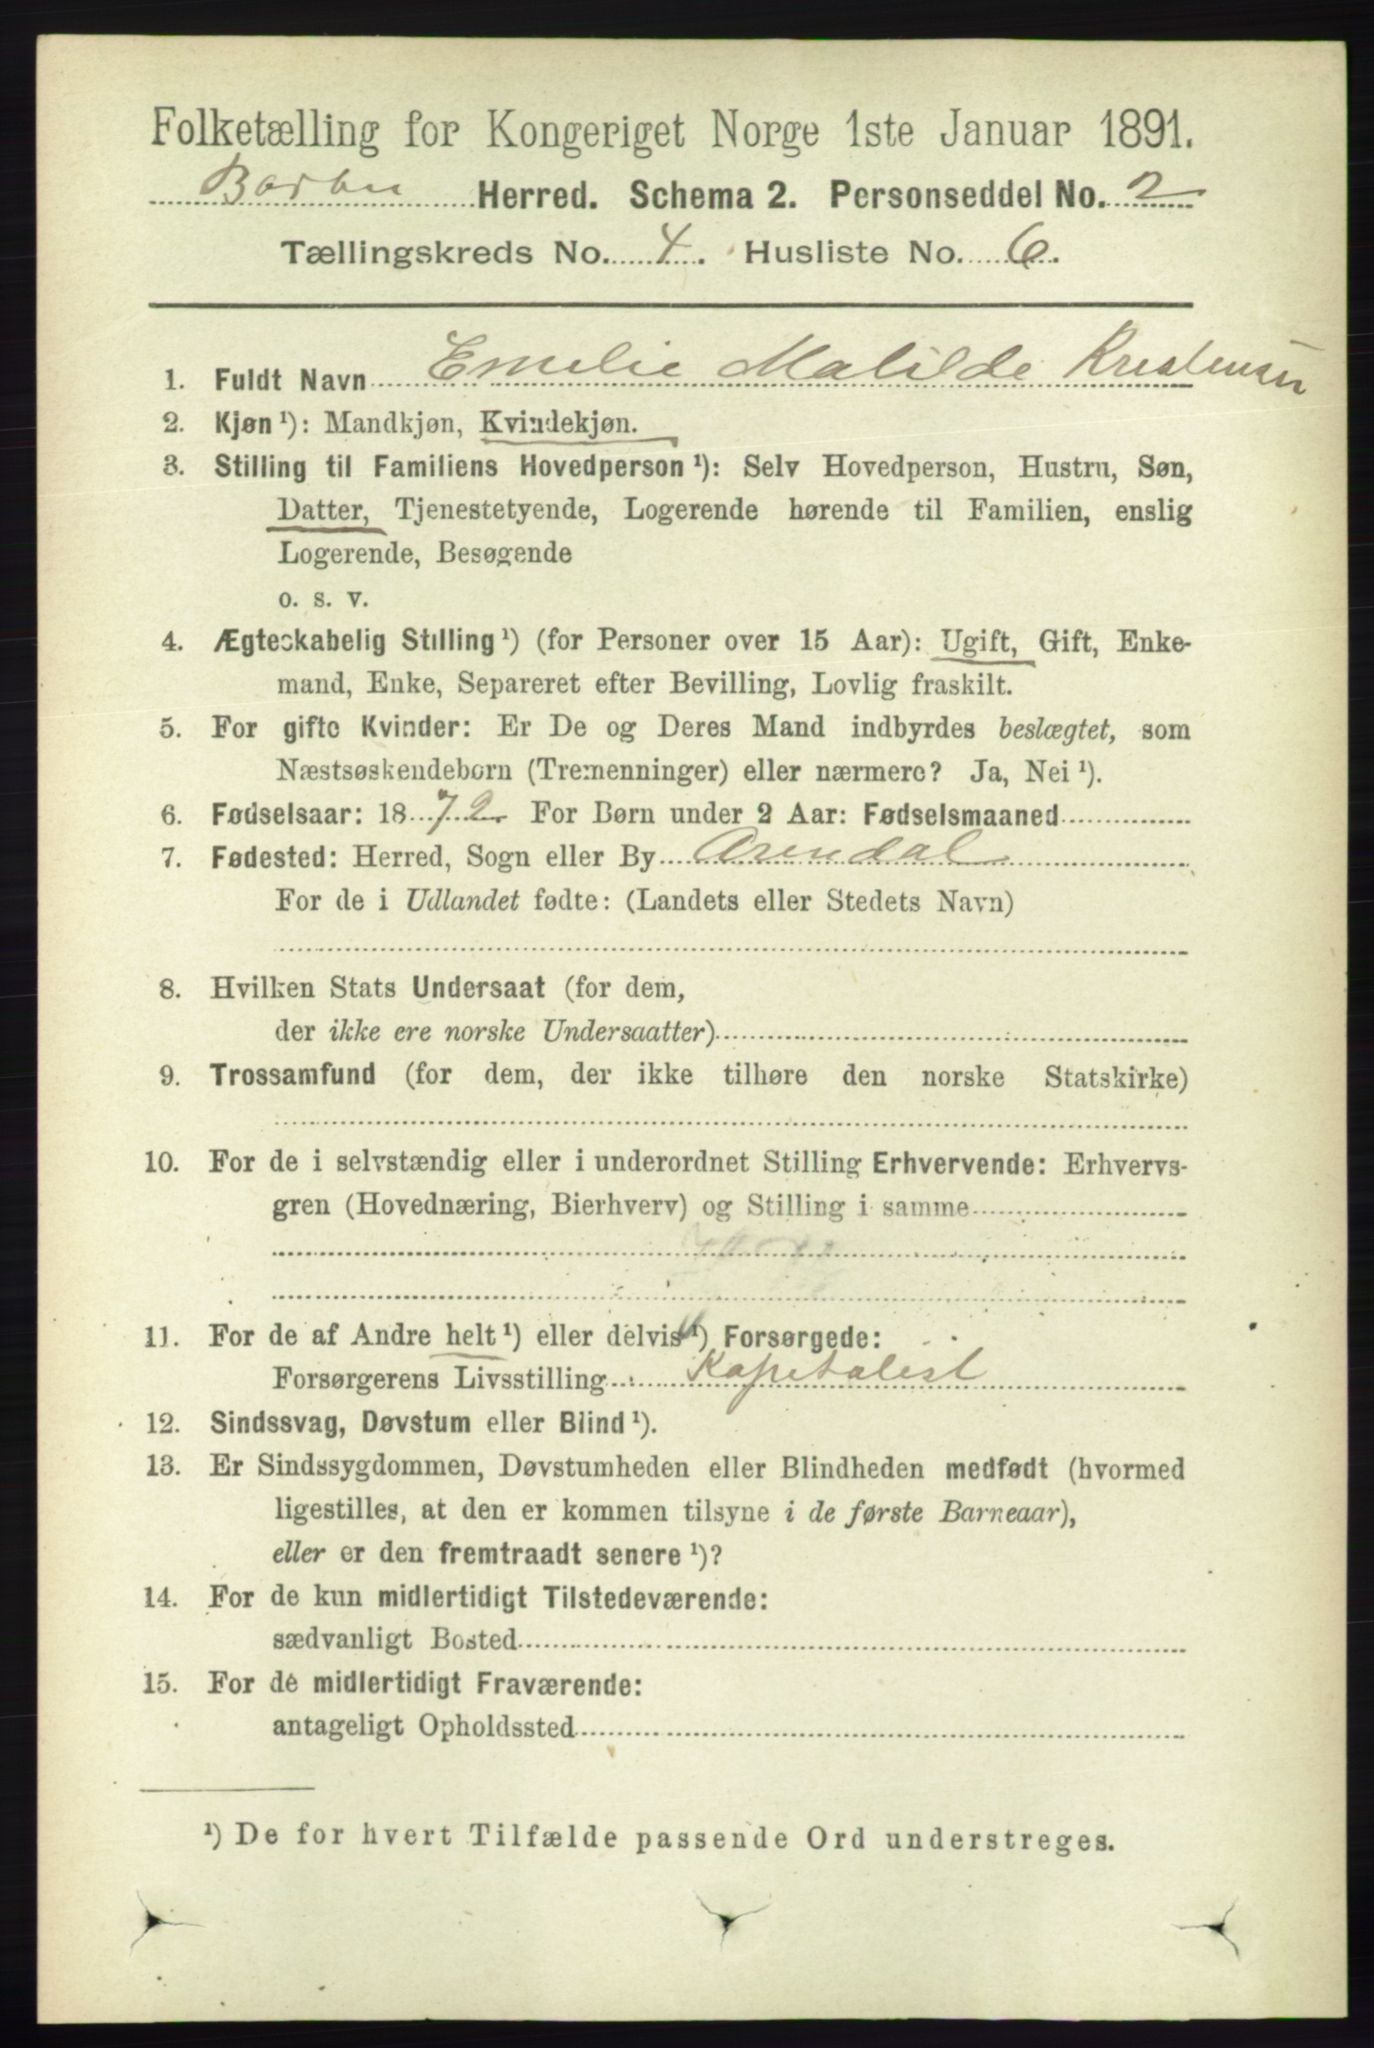 Folketælling for Kongeriget Norge 1ste Januar 1891.
Barbu Herred. Schema 2. Personseddel No. 2
Tællingskreds No. 4. Husliste No. 6.
1. Fuldt Navn Emelie Matilde Kristensen
2. Kjøn ¹): Mandkjøn, Kvindekjøn.
3. Stilling til Familiens Hovedperson ¹): Selv Hovedperson, Hustru, Søn,
Datter, Tjenestetyende, Logerende hørende til Familien, enslig
Logerende, Besøgende
o. s. v.
4. Ægteskabelig Stilling ¹) (for Personer over 15 Aar): Ugift, Gift, Enke-
mand, Enke, Separeret efter Bevilling, Lovlig fraskilt.
5. For gifte Kvinder: Er De og Deres Mand indbyrdes beslægtet, som
Næstsøskendebørn (Tremenninger) eller nærmere? Ja, Nei ¹).
6. Fødselsaar: 1872 For Børn under 2 Aar: Fødselsmaaned
7. Fødested: Herred, Sogn eller By Arendal
For de i Udlandet fødte: (Landets eller Stedets Navn)
8. Hvilken Stats Undersaat (for dem,
der ikke ere norske Undersaatter)
9. Trossamfund (for dem, der ikke tilhøre den norske Statskirke)
10. For de i selvstændig eller i underordnet Stilling Erhvervende: Erhvervs-
gren (Hovednæring, Bierhverv) og Stilling i samme
11. For de af Andre helt ¹) eller delvis ¹) Forsørgede:
Forsørgerens Livsstilling Kapitalist
12. Sindssvag, Døvstum eller Blind ¹).
13. Er Sindssygdommen, Døvstumheden eller Blindheden medfødt (hvormed
ligestilles, at den er kommen tilsyne i de første Barneaar),
eller er den fremtraadt senere ¹)?
14. For de kun midlertidigt Tilstedeværende:
sædvanligt Bosted
15. For de midlertidigt Fraværende:
antageligt Opholdssted
¹) De for hvert Tilfælde passende Ord understreges.